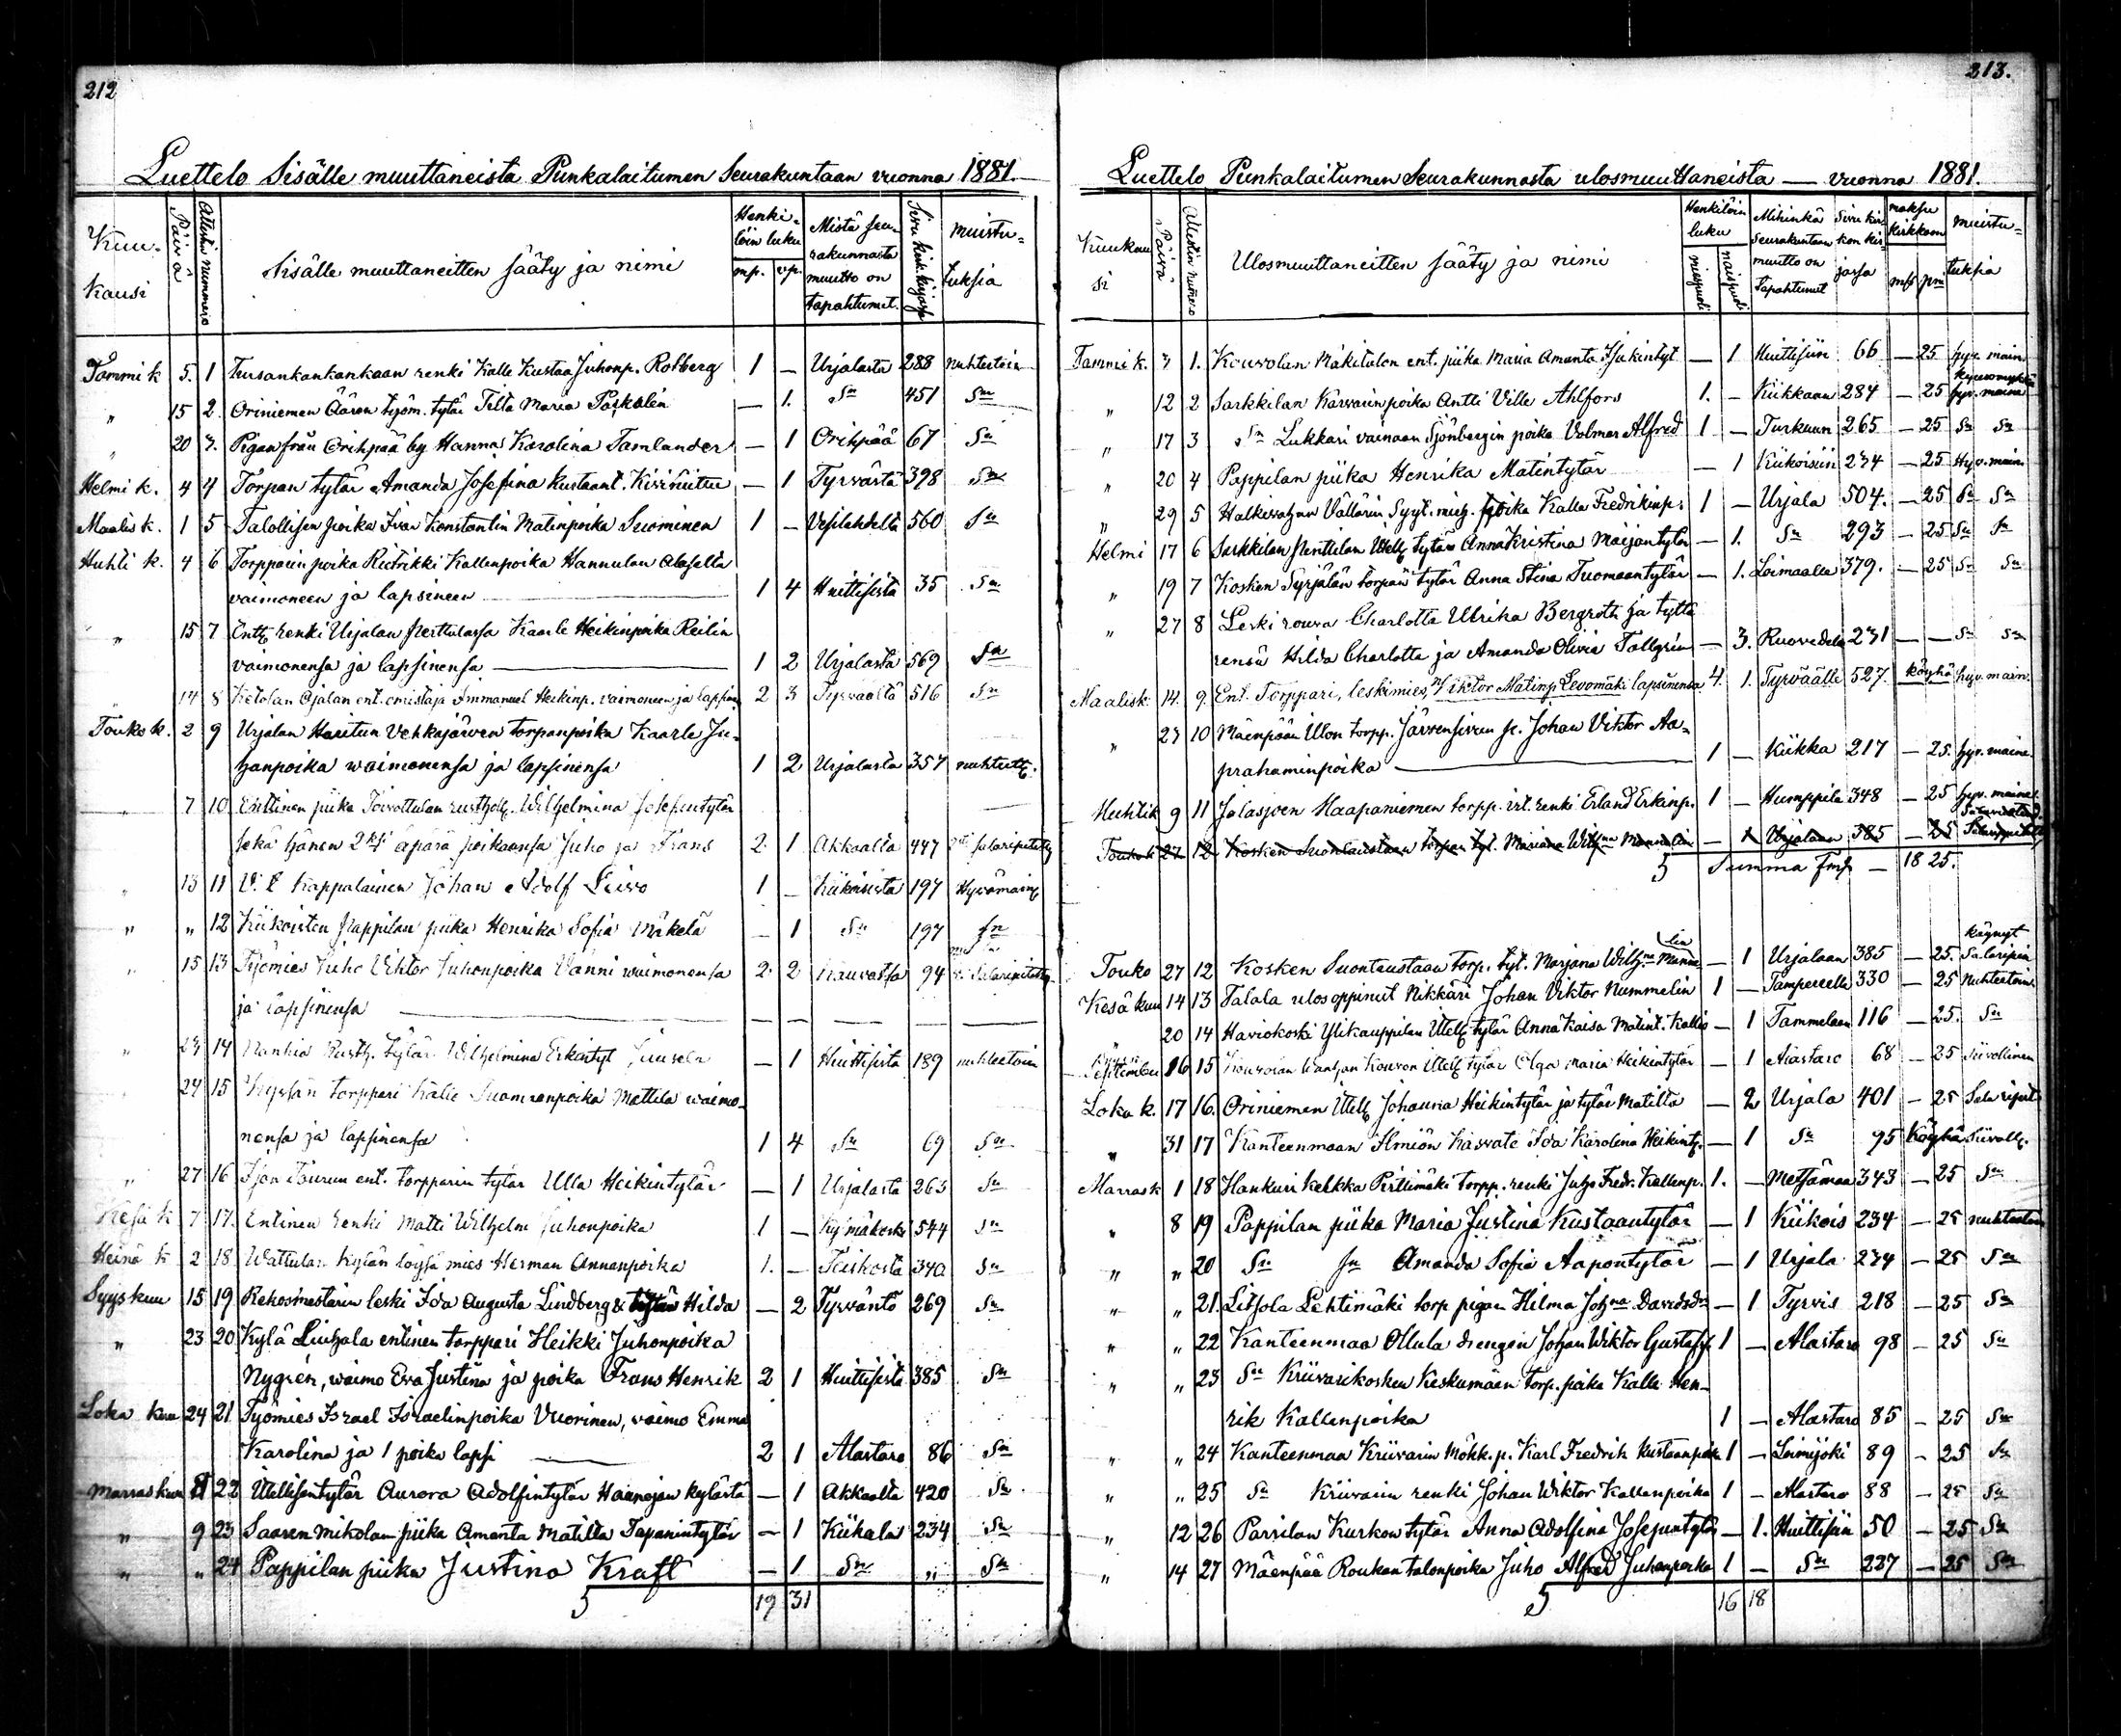 212
Luettelo Sisälle muuttaneista Punkalaitumen Seurakuntaan vuonna 1881.
Kuu-kausi Päivä Attestin nummero Sisälle muuttaneitten sääty ja nimi Henki-löin luku mp. vp. Mistä seu-rakunnasta muutto on tapahtunut. Sivu kirk. kirjassa muistu-tuksia
Tammi k 5. 1 renki Kalle Kustaa Juhonp. Rotberg 1 — Urjalasta 288 nuhteetoin
" 15 2. Oriniemen Ääron työm. tytär Tilta Maria — 1. Sn 451 Sn
" 20 3. Pigan från Orihpää by Hanna Karolina Tamlander — 1 Orihpää 67 Sn
Helmi k. 4 4 Torpan tytär Amanda Josefina Kustaant. — 1 Tyrväätä 398 Sn
Maalis k. 1 5 Talollisen poika Ivar Konstantin Matinpoika Suominen 1 — Vesilahdelta 560 Sn
Huhti k. 4 6 Torpparin poika Rietrikki Kallenpoika Hannulan
vaimoneen ja lapsineen — 1 4 Huittisista 35 Sn
" 15 7 Ent. renki Urjalan Perttulassa Kaarle Heikinpoika Reilin
vaimonensa ja lapsinensa — 1 2 Urjalasta 569 Sn
14 8 Ketolan Ojalan ent. omistaja Emmanuel Heikinp. vaimoneen ja lapsin 2 3 Tyrväältä 516 Sn
Touko k. 2 9 Urjalan Hautun Vehkajärven torpanpoika Kaarle Ju-
hanpoika waimonensa ja lapsinensa 1 2 Urjalasta 357 nuhteett.
" 7 10 Entinen piika Toivottulan rusth. Wilhelmina Josefintytär
sekä hänen 2 äpärä poikaansa Juho ja Frans 2. 1 Akkaalta 447
" 13 11 V. t. Kappalainen Johan Adolf Leivo 1 — Kiikoisista 197 Hyvämain
" " 12 Kiikoisten Pappilan piika Henrika Sofia Mäkelä — 1 Sn 197 Sn
" 15 13 Työmies Juho Viktor Juhonpoika Vanni waimonensa 2. 2 Kauvatsa 94
ja lapsinensa —
" 23 14 Rusth. tytär Wilhelmina Erkintyt — 1 Huittisista 189 nuhteetoin
24 15 torppari Kalle Tuomaanpoika Mattila waimo-
nensa ja lapsinensa 1 4 Sn 69 Sn
" 27 16 ent. torpparin tytär Ulla Heikintytär — 1 Urjalasta 263 Sn
Kesä k 7 17. Entinen renki Matti Wilhelm Juhonpoika 1 — 544 Sn
Heinä k 2 18 Wattulan kylän löysä mies Herman Annanpoika 1. — 340 Sn
Syys kuu 15 19 leski Ida Augusta Lindberg & tytär Hilda — 2 Tyrväntö 269 Sn
" 23 20 Kylä Liuhala entinen torppari Heikki Juhonpoika
Nygrén, waimo Eva Justina ja poika Frans Henrik 2 1 Huittisista 385 Sn
Loka kuu 24 21 Työmies Israel Israelinpoika Vuorinen, vaimo Emma
Karolina ja 1 poika lapsi — 2 1 Alastaro 86 Sn
Marras kuu 8 22 Itellisentytär Aurora Adolfintytär kylästä — 1 Akkaalta 420 Sn
" 9 23 Saaren Mikolan piika Amanta Matilta Tapanintytär — 1 Kiikala 234 Sn
" " 24 Pappilan piika Justina Kraft — 1 Sn " Sn
5 19 31
213.
Luettelo Punkalaitumen Seurakunnasta ulosmuuttaneista — vuonna 1881.
Kuukausi Päivä Attestin numero Ulosmuuttaneitten sääty ja nimi Henkilöin luku miespuoli naispuoli Mihinkä seurakuntaan muutto on tapahtunut Sivu kir-kon kir-jassa maksu kirkkoon mk pni muistu-tuksia
Tammi k. 3 1. Kouvolan Mäkitalon ent. piika Maria Amanta Isakintyt — 1 Huittisiin 66 — 25 hyv. main.
" 12 2 Sarkkilan Karvarin poika Antti Ville Ahlfors 1. — Kiikkaan 284 — 25 hyv. maine
" 17 3 Sn Lukkari vainaan Sjönbergin poika Volmar Alfred 1 — Turkuun 265 — 25 Sn Sn
" 20 4 Pappilan piika Henrika Matintytär — 1 Kiikoisiin 234 — 25 Hyv. main.
" 29 5 poika Kalla Fredrikinp. 1 — Urjala 504. — 25 Sn Sn
Helmi 17 6 Sarkkilan Penttilan Itell. tytär Anna Kristina Maijantytär — 1. Sn 293 — 25 Sn Sn
" 19 7 Kosken Syrjälän torpan tytär Anna Stina Tuomaantytär — 1. Loimaalla 379. — 25 Sn Sn
" 27 8 Leski rouva Charlotta Ulrika Bergroth ja tyttä
rensä Hilda Charlotta ja Amanda Olivia Tallgrén — 3. Ruovedelle 231 — — Sn Sn
Maalisk. 14. 9. Ent. Torppari, leskimies, Viktor Matinp. Levomäki lapsinensa 4. 1. Tyrväälle 527. köyhä hyv. main.
" 23 10 Mäenpään Ulon torpp. Järvensivun p. Johan Viktor Aa-
prahaminpoika — 1 — Kiikka 217 — 25. hyv. maine.
Huhtik 9 11 Jalasjoen Haapaniemen torpp. ent. renki Erland Erkinp. 1 — Humppila 348 — 25 hyv. maine.
Touko k 27 12 Kosken Suontaustan torpan tyt. Mariana Wilhna Mannelin — 1 Urjalaan 385 — 25
5 Summa Fmk — 18 25.
Touko 27 12 Kosken Suontaustaan torp. tyt. Marjana Wilhna Manne-lin — 1 Urjalaan 385 — 25. käynyt Salaripin
Kesäkuu 14 13 Talala ulosoppinut Nikkäri Johan Viktor Nummelin 1 — Tampereelle 330 — 25 Nuhteetoin
20 14 Haviokoski Ylikauppilan Itell. tytär Anna Kaisa Matint. Kallio — 1 Tammelaan 116 — 25. Sn
September 16 15 Kouvolan Kouvon Itell. tytär Olga Maria Heikintytär — 1 Alastaro 68 — 25 Siivollinen
Loka k. 17 16. Oriniemen Itell. Johanna Heikintytär ja tytär Matilta — 2 Urjala 401 — 25 Sala ripit
" 31 17 Kanteenmaan Ilmiön Kasvate Ida Karolina Heikint. — 1 Sn 95 Köyhä Siivoll.
Marras k 1 18 Hankuri Kelkka Pirttimäki torpp. renki Juho Fredr. Kallenp. 1. — Metsämaa 343 — 25 Sn
" 8 19 Pappilan piika Maria Justina Kustaantytär — 1 Kiikois 234 — 25 nuhteetoin
" " 20 Sn Sn Amanda Sofia Aapontytär — 1 Urjala 234 — 25 Sn
" " 21. Liitsola Lehtimäki torp pigan Hilma Johna Davidsdr — 1 Tyrvis 218 — 25 Sn
" " 22 Kanteenmaa Ollula drengen Johan Wiktor Gustafs. 1 — Alastaro 98 — 25 Sn
" " 23 Sn Kriivarikosken Keskumäen torp. poika Kalle Hen-
rik Kallenpoika 1 — Alastaro 85 — 25 Sn
" " 24 Kanteenmaa Kriivarin Mökk. p. Karl Fredrik Kustaanpoika 1 — Loimijoki 89 — 25 Sn
" " 25 Sn Kriivarin renki Johan Wiktor Kallenpoika 1 — Alastaro 88 — 25 Sn
" 12 26 Parrilan Kurkon tytär Anna Adolfina Josefintytär — 1. Huittisiin 50 — 25 Sn
" 14 27 Mäenpää Roukan talonpoika Juho Alfred Juhonpoika 1 — Sn 227 — 25 Sn
5 16 18